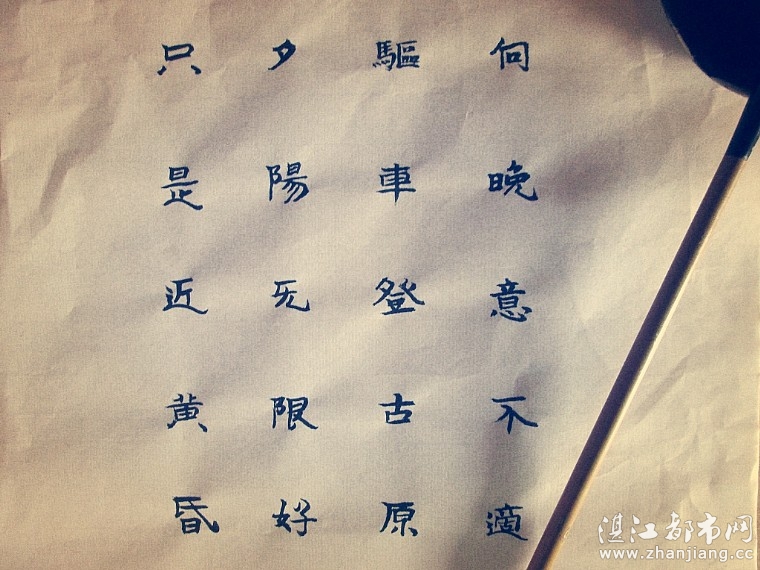 向晚意不適
驅車登古原
夕陽无限好
只是近黄昏
湛江都市网
www.zhanjiang.cc